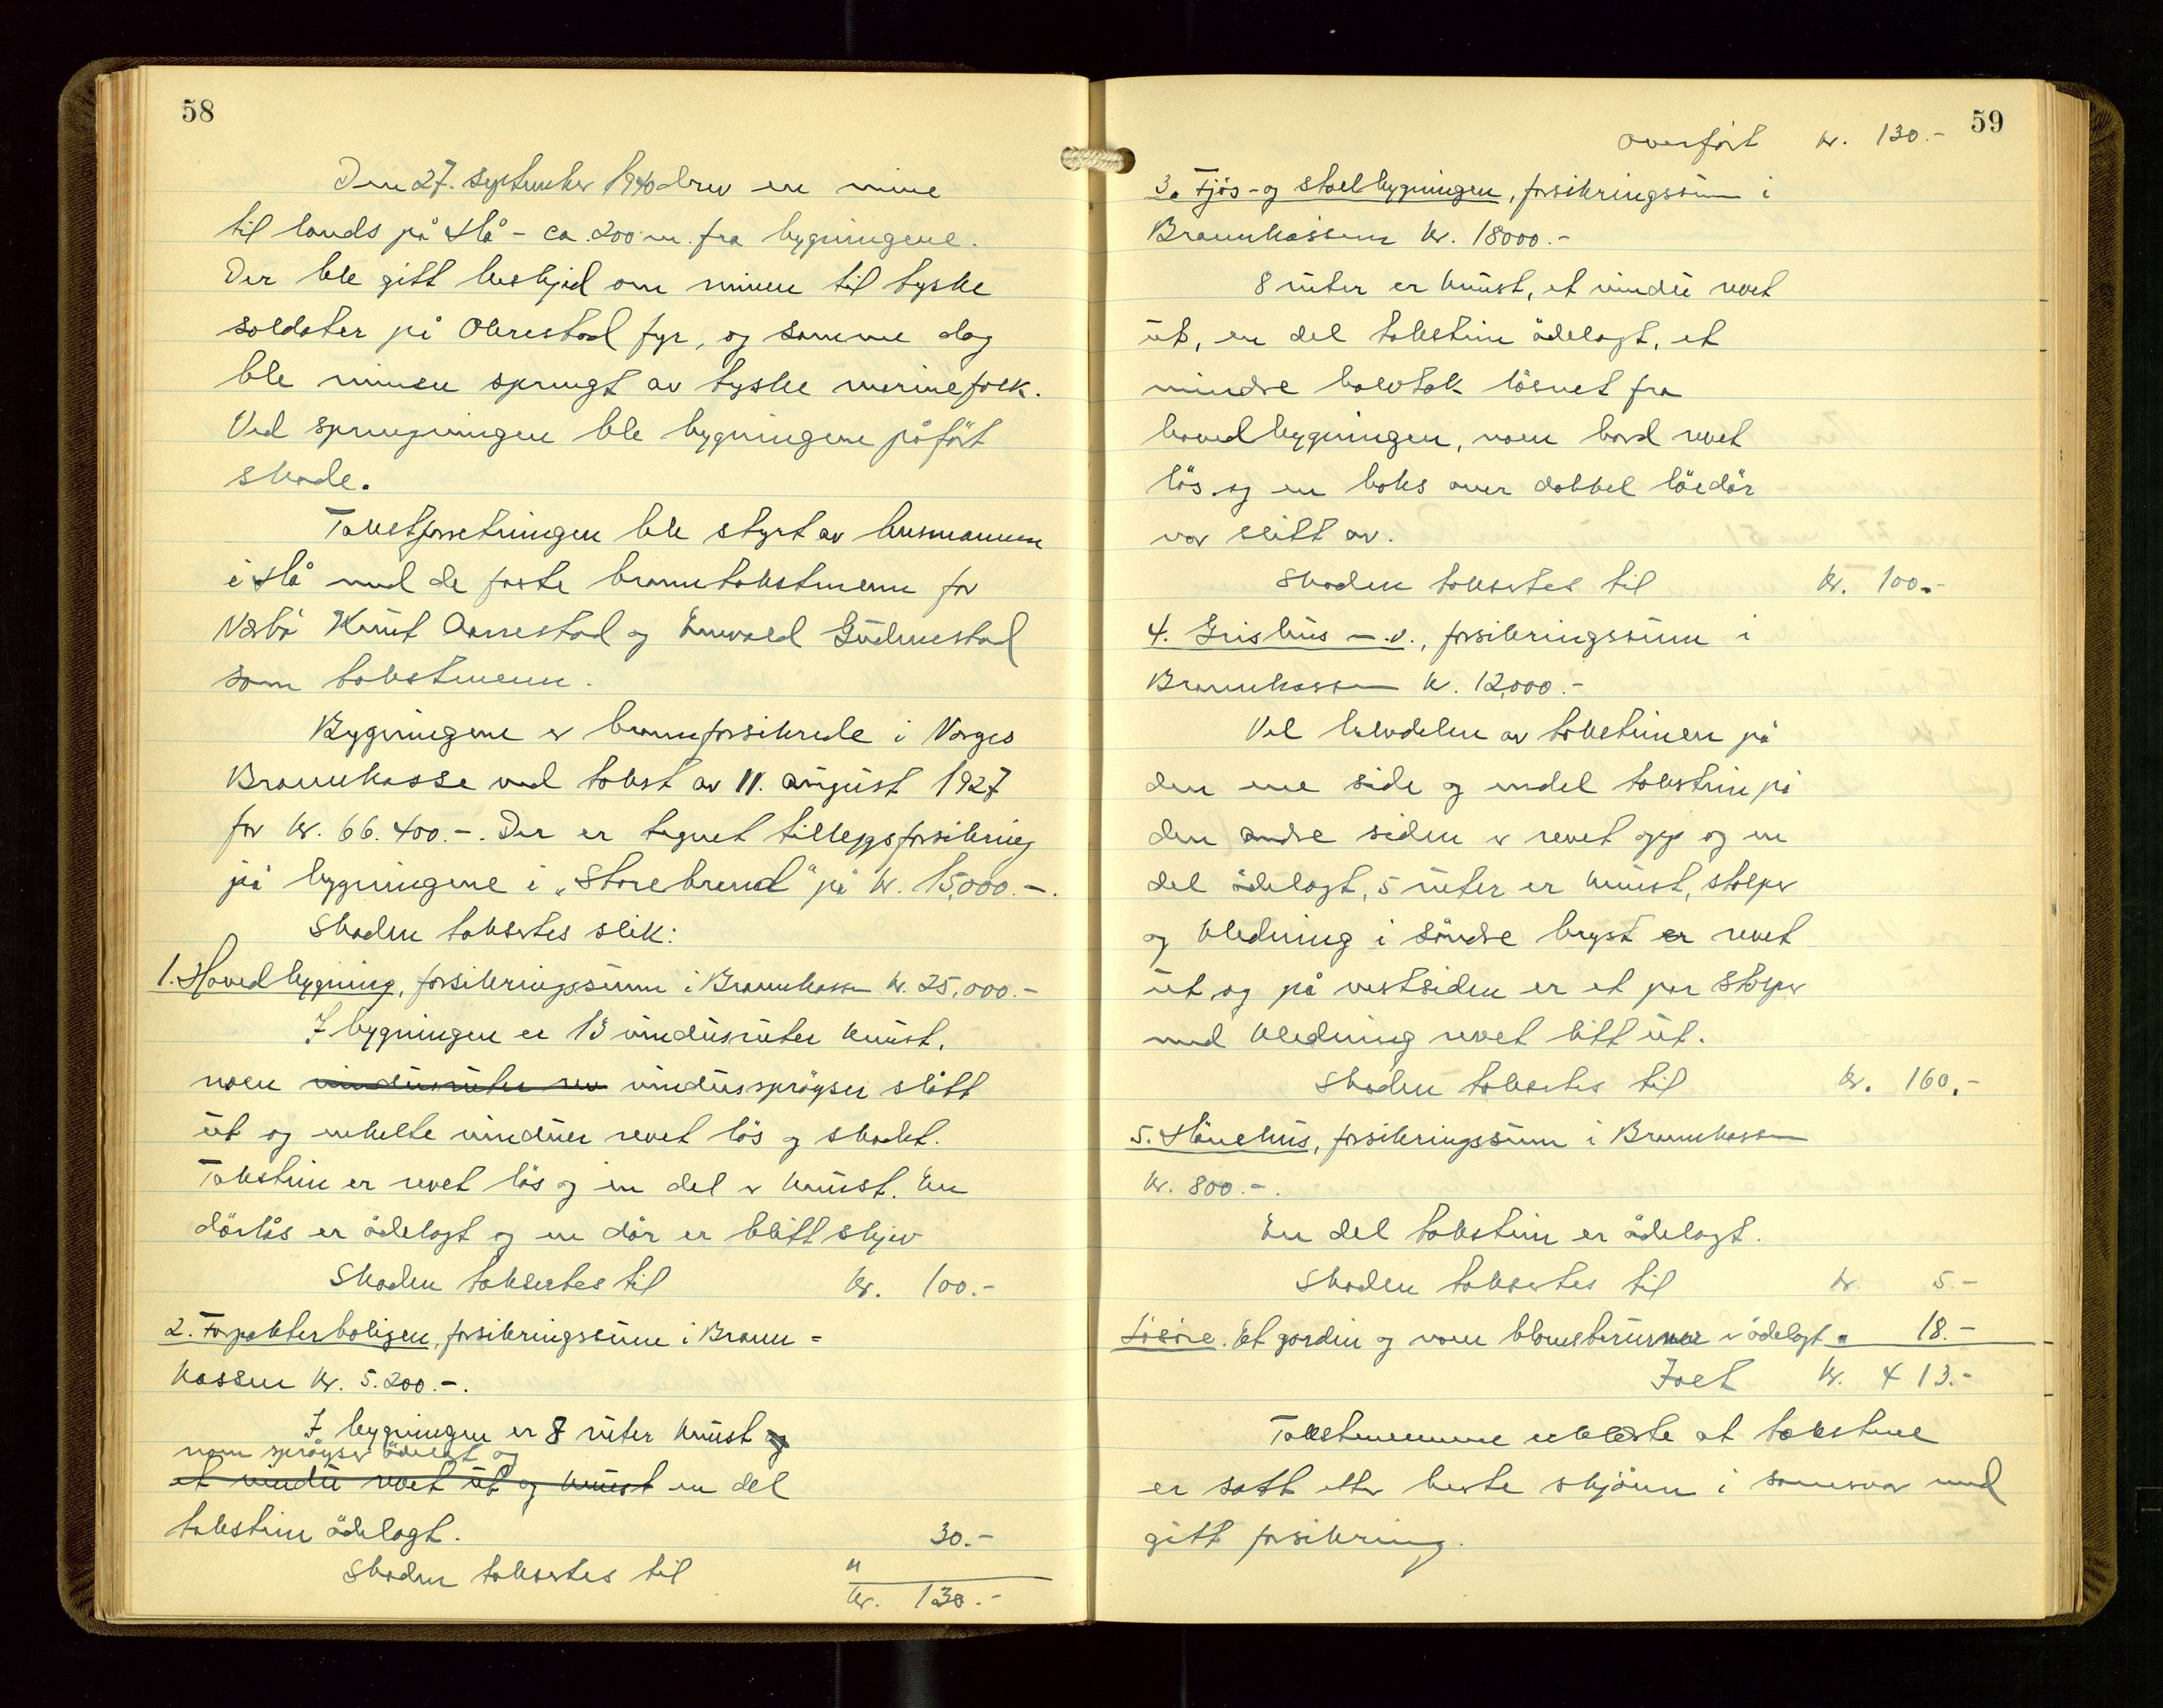 58
Den 27. september 1940 drev en mine
til lands på Hå - ca. 200 m. fra bygningene.
Der ble gitt beskjed om minen til tyske
soldater på Obrestad fyr, og samme dag
ble minen sprengt av tyske marinefolk.
Ved sprengningen ble bygningene påført
skade.
Takstforretningen ble styrt av lensmannen
i Hå med de faste branntakstmenn for
Nærbø Knut Aarrestad og Enevald Gudmestad
som takstmenn.
Bygningene er brannforsikrede i Norges
Brannkasse ved takst av 11. august 1927
for kr. 66.400.-. Der er tegnet tilleggsforsikring
på bygningene i "Storebrand" på kr. 15,000.-.
Skaden taksertes slik:
1. Hovedbygning, forsikringssum i Brannkassen kr. 25,000.-
I bygningen er 13 vindusruter knust,
noen vindusruter rev vindussprosser slått
ut og enkelte vinduer revet løs og skadet.
Takstein er revet løs og en del er knust. En
dørlås er ødelagt og en dør er blitt skjev
Skaden taksertes til kr. 100.-
2. Forpakterboligen, forsikringssum i Brann-
kassen kr. 5.200.-.
I bygningen er 8 ruter knust og
noen sprosser ødelagt og
et vindu revet ut og knust en del
takstein ødelagt.
Skaden taksertes til " 30.-
kr. 130.-
59
Overført kr. 130.-
3. Fjøs- og stallbygningen, forsikringssum i
Brannkassen kr. 18000.-
8 ruter er knust, et vindu revet
ut, en del takstein ødelagt, et
mindre halvtak løsnet fra
hovedbygningen, noen bord revet
løs og en boks over dobbel løedør
var slitt av.
Skaden taksertes til kr. 100.-
4. Grishus m.v., forsikringssum i
Brannkassen kr. 12,000.-
Vel halvdelen av taksteinen på
den ene side og endel takstein på
den andre siden er revet opp og en
del ødelagt, 5 ruter er knust, stolper
og kledning i søndre bryst er revet
ut og på vestsiden er et par stolper
med kledning revet litt ut.
Skaden taksertes til kr. 160.-
5. Hønehus, forsikringssum i Brannkassen
kr. 800.-.
En del takstein er ødelagt.
Skaden taksertes til kr. 5.-
Løsøre. Et gardin og noen blomsterurner er ødelagt " 18.-
Ialt kr. 413.-
Takstmennene erklærte at takstene
er satt etter beste skjønn i samsvar med
gitt forsikring.